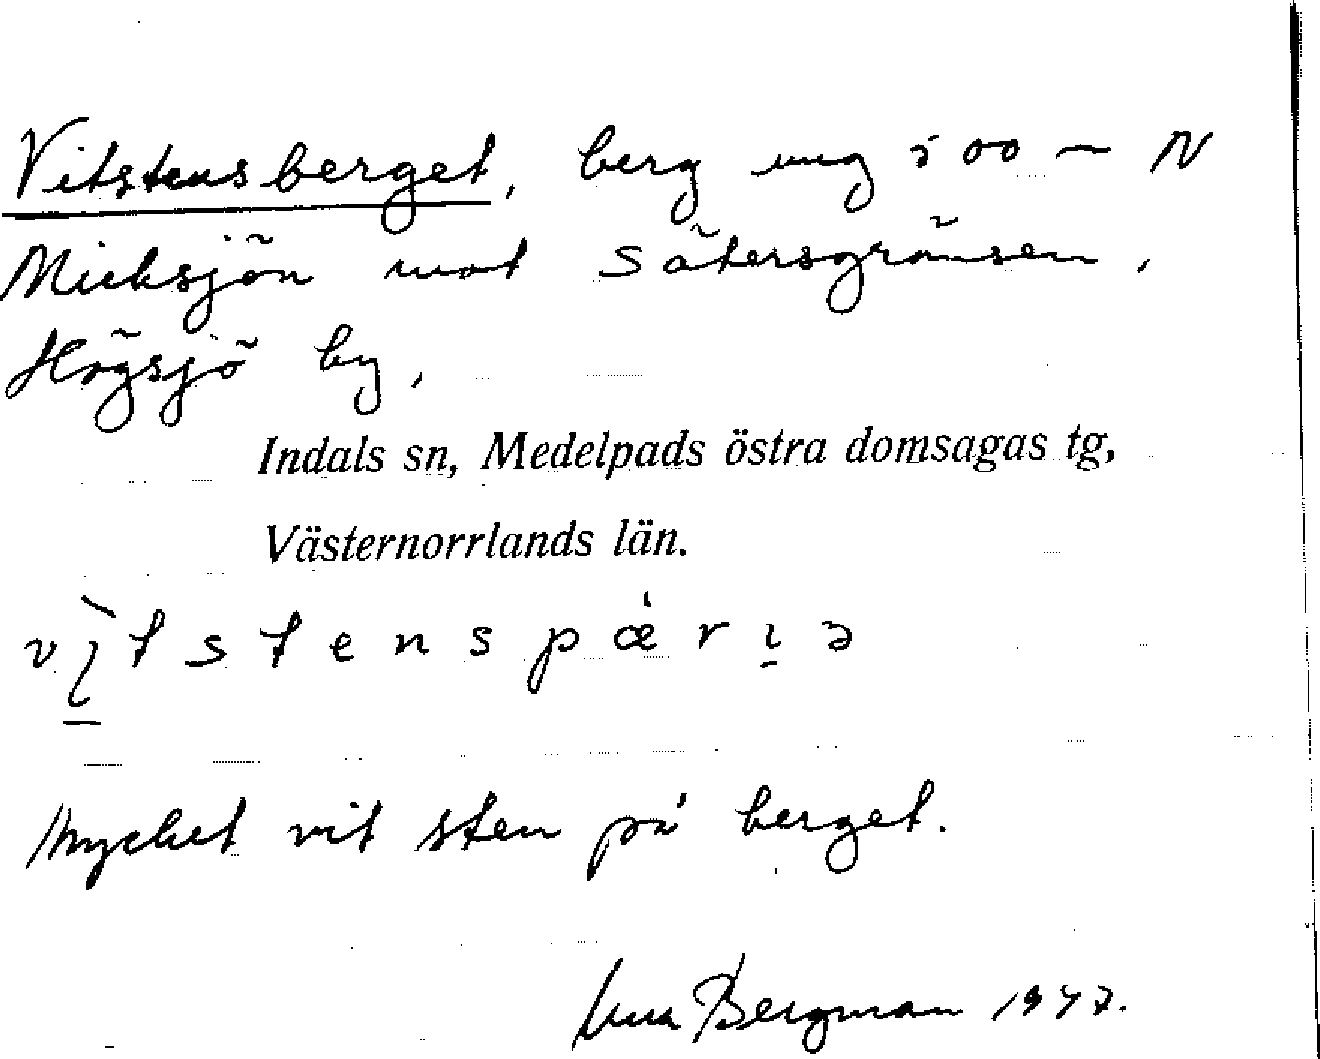 Vitstensberget, berg ung 500 m N
Mieksjön mot Sätersgränsen,
Högsjö by,
Indals sn, Medelpads östra domsagas tg,
Västernorrlands län.
vìtstenspæ̀rıə
Mycket vit sten på berget.
Bergman 1947.